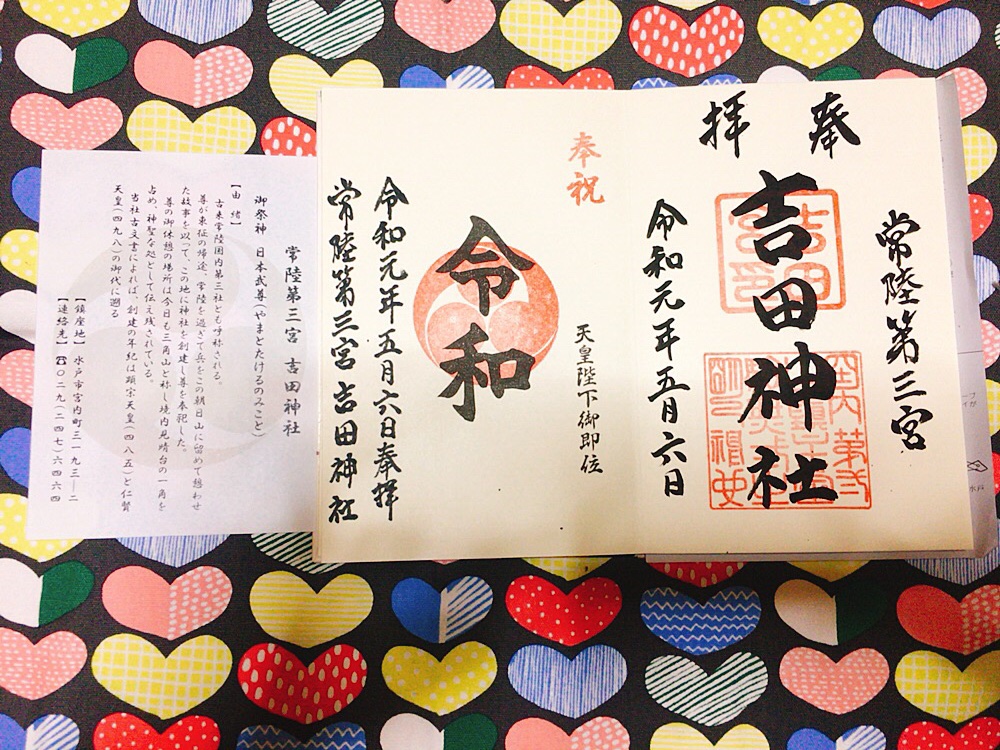 奉拝
常陸第三宮
吉田神社
令和元年五月六日
奉祝
天皇陛下御即位
令和
令和元年五月六日奉拝
常陸第三宮吉田神社
常陸第三宮 吉田神社
御祭神 日本武尊(やまとたけるのみこと)
【由緒】
古来常陸国内第三社とも呼称される。
尊が東征の帰途、常陸を過ぎて兵をこの朝日山に留めて憩わせ
た故事を以って、この地に神社を創建し尊を奉祀した。
尊の御休憩の場所は今日も三角山と称し境内見晴台の一角を
占め、神聖な処として伝え残されている。
当社古文書によれば、創建の年紀は顕宗天皇(四八五)と仁賢
天皇(四九八)の御代に遡る
【鎮座地】水戸市宮内町三一九三―二
【連絡先】☎〇二九(二四七)六四六四
水戸